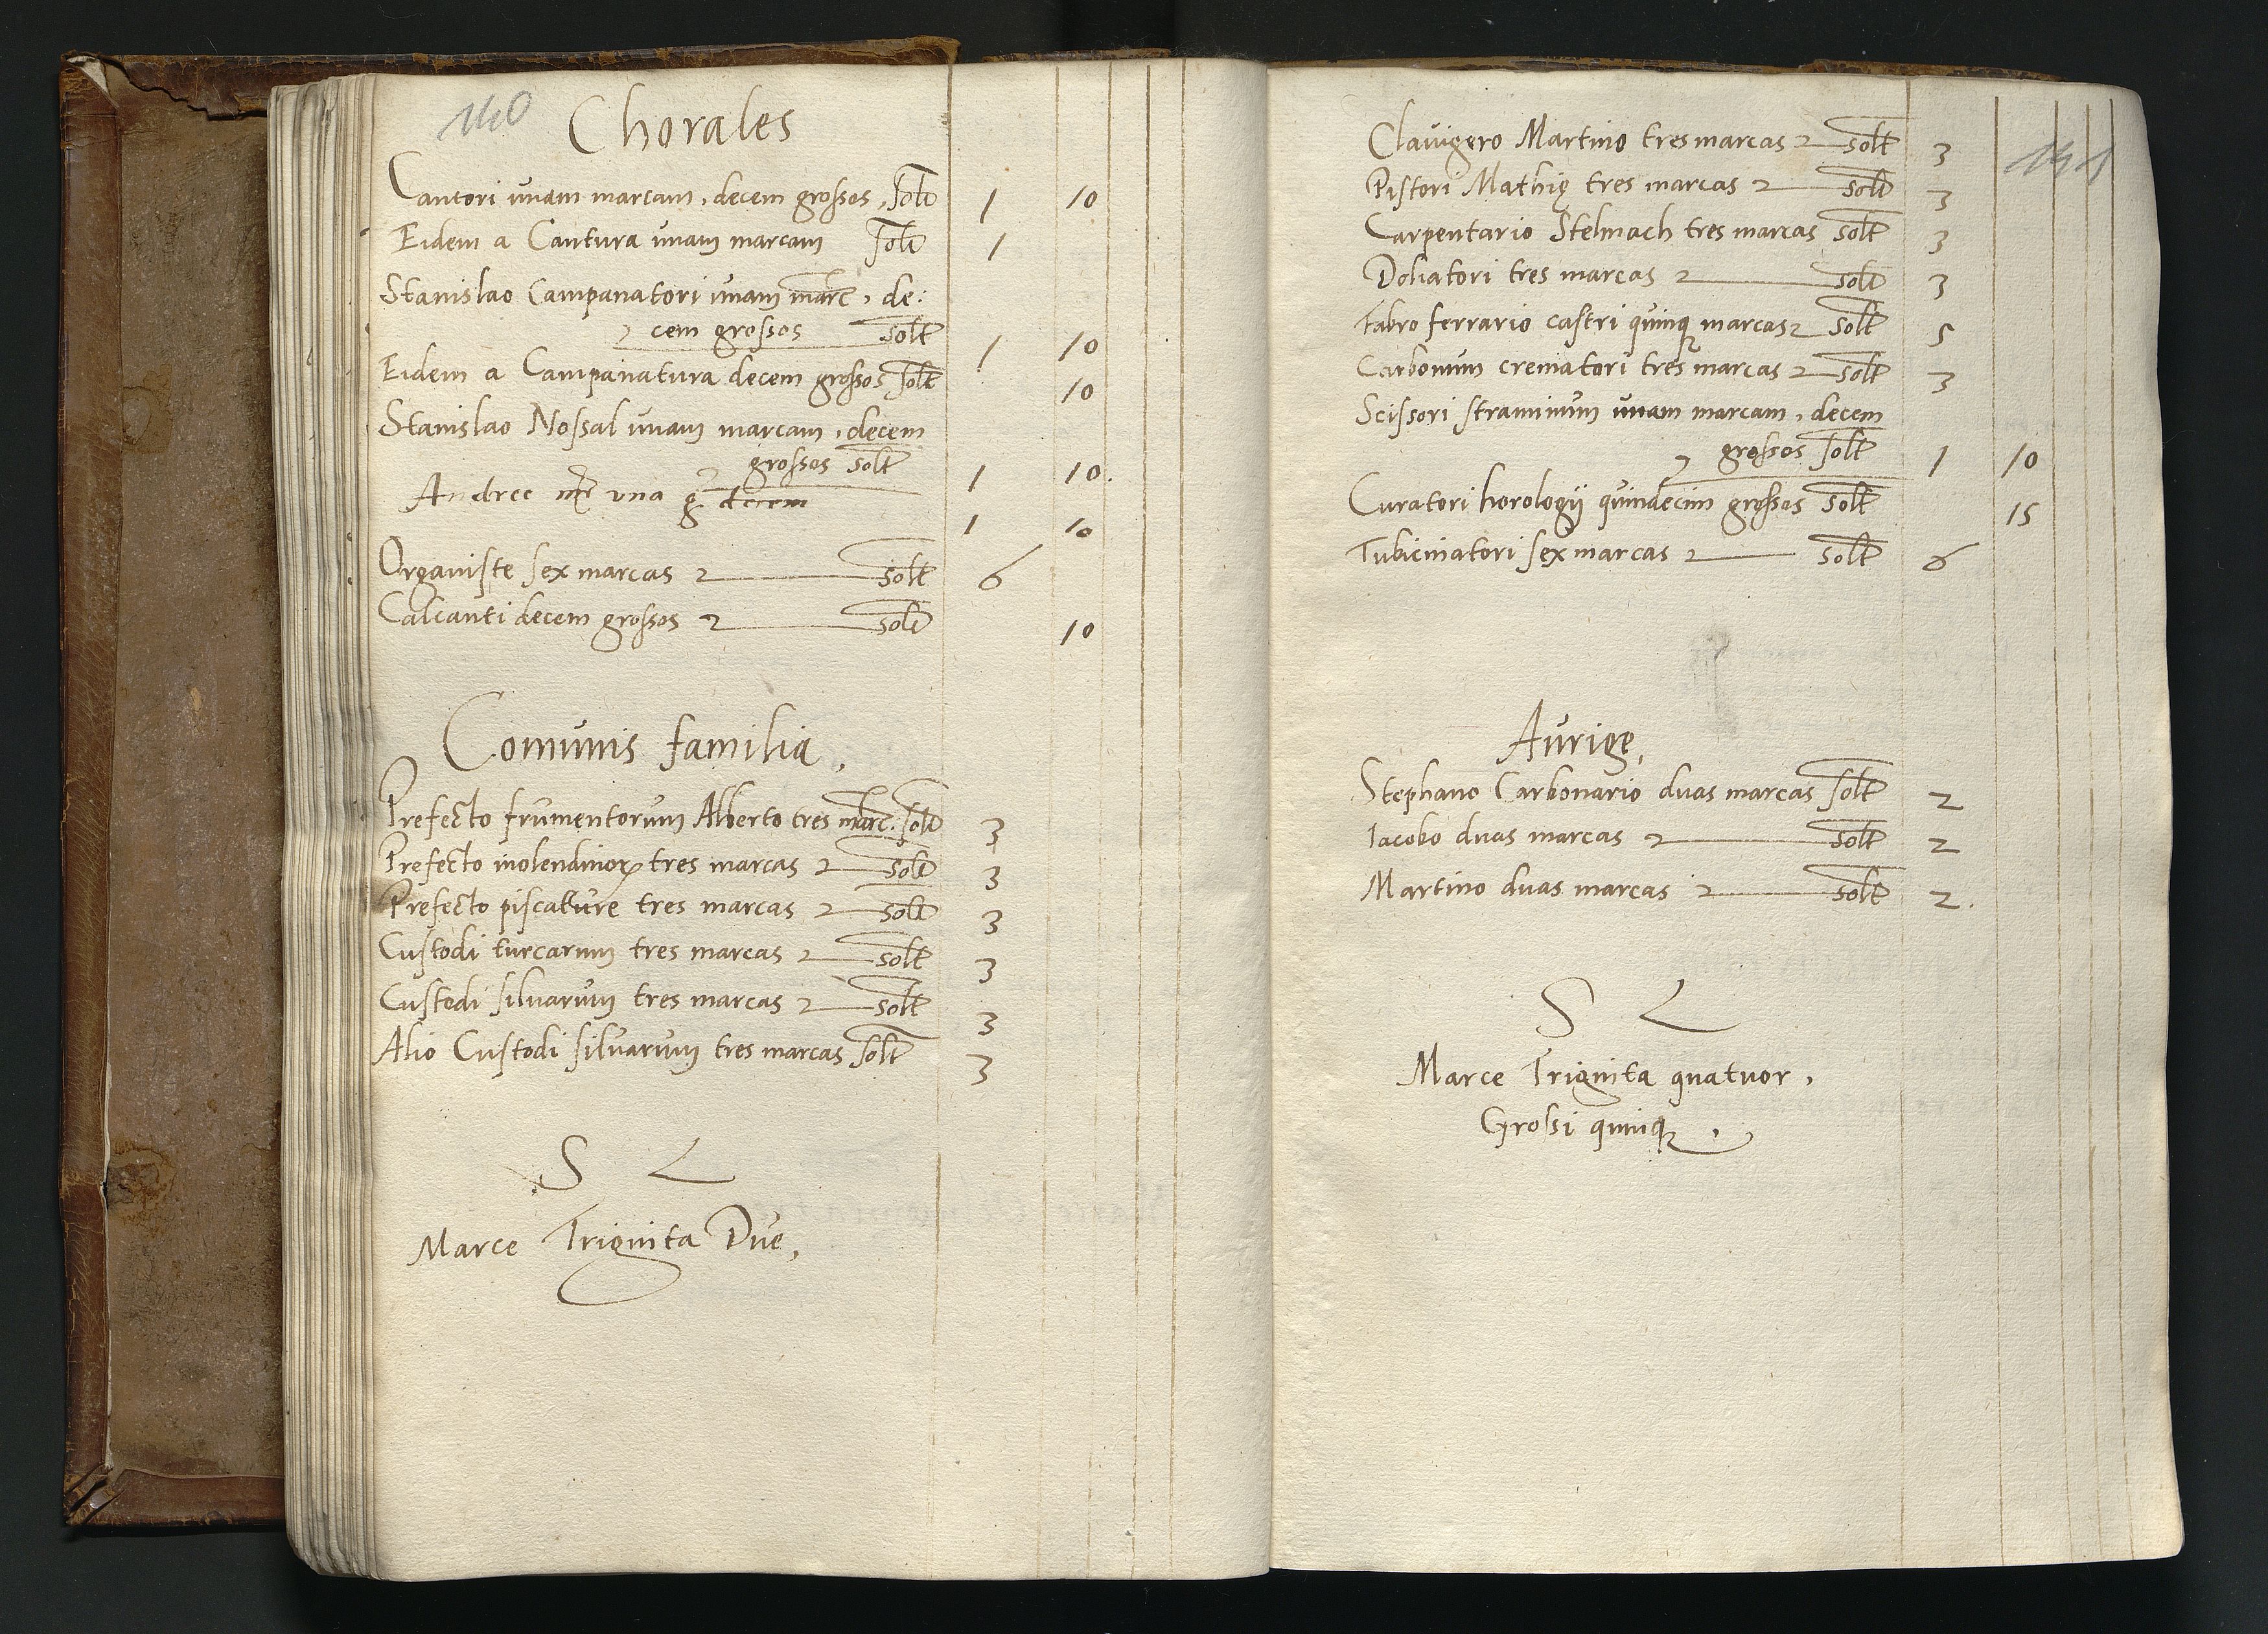 140
Chorales
Cantori unam marcam, decem grossos, solt 1 10
Eidem a Cantura unam marcam solt 1
Stanislao Campanatori unam marc, de:
cem grossos solt 1 10
Eidem a Campanatura decem grossos solt 10
Stanislao Nossal unam marcam, decem
grossos solt 1 10.
Andree mr una g decem 1 10
Organiste sex marcas solt 6
Calcanti decem grossos solt 10
Comunis familia,
Prefecto frumentorum Alberto tres marc: solt 3
Prefecto molendinorꝝ tres marcas solt 3
Prefecto piscature tres marcas solt 3
Custodi turcarum tres marcas solt 3
Custodi silvarum tres marcas solt 3
Alio Custodi silvarum tres marcas solt 3
S L
Marce Triginta Due,
141
Clavigero Martino tres marcas solt 3
Pistori Mathię tres marcas solt 3
Carpentario Stelmach tres marcas solt 3
Doliatori tres marcas solt 3
Fabro ferrario castri quinqꝫ marcas solt 5
Carbonum crematori tres marcas solt 3
Scissori straminum unam marcam, decem
grossos solt 1 10
Curatori horologij quindecim grossos solt 15
Tubicinatori sex marcas solt 6
Aurige,
Stephano Carbonario duas marcas solt 2
Iacobo duas marcas solt 2
Martino duas marcas solt 2.
S L
Marce Triginta quatuor,
Grossi quinqꝫ,